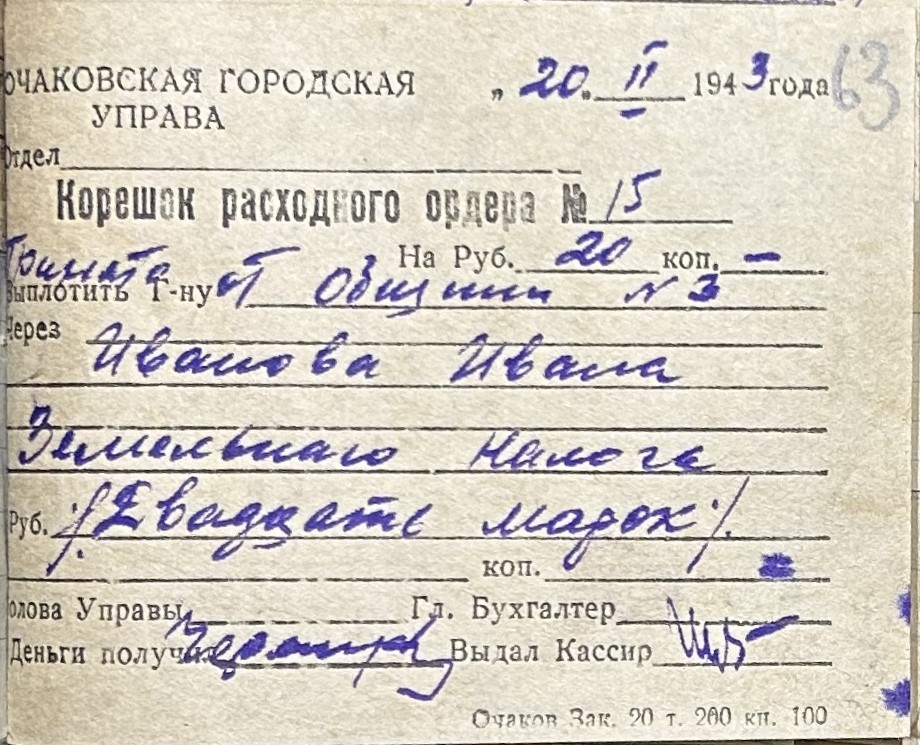 ОЧАКОВСКАЯ ГОРОДСКАЯ
УПРАВА
„ 20 „ II 1943 года 63
Отдел
Корешок расходного ордера № 15
На Руб. 20 коп. –
Принято
Выплотить Г-ну от Общины N 3
Через
Иванова Ивана
Земельнаго Налога
Руб. /Двадцать марок/.
коп.
олова Управы Гл. Бухгалтер
Деньги получил Выдал Кассир
Очаков Зак. 20 т. 200 кн. 100